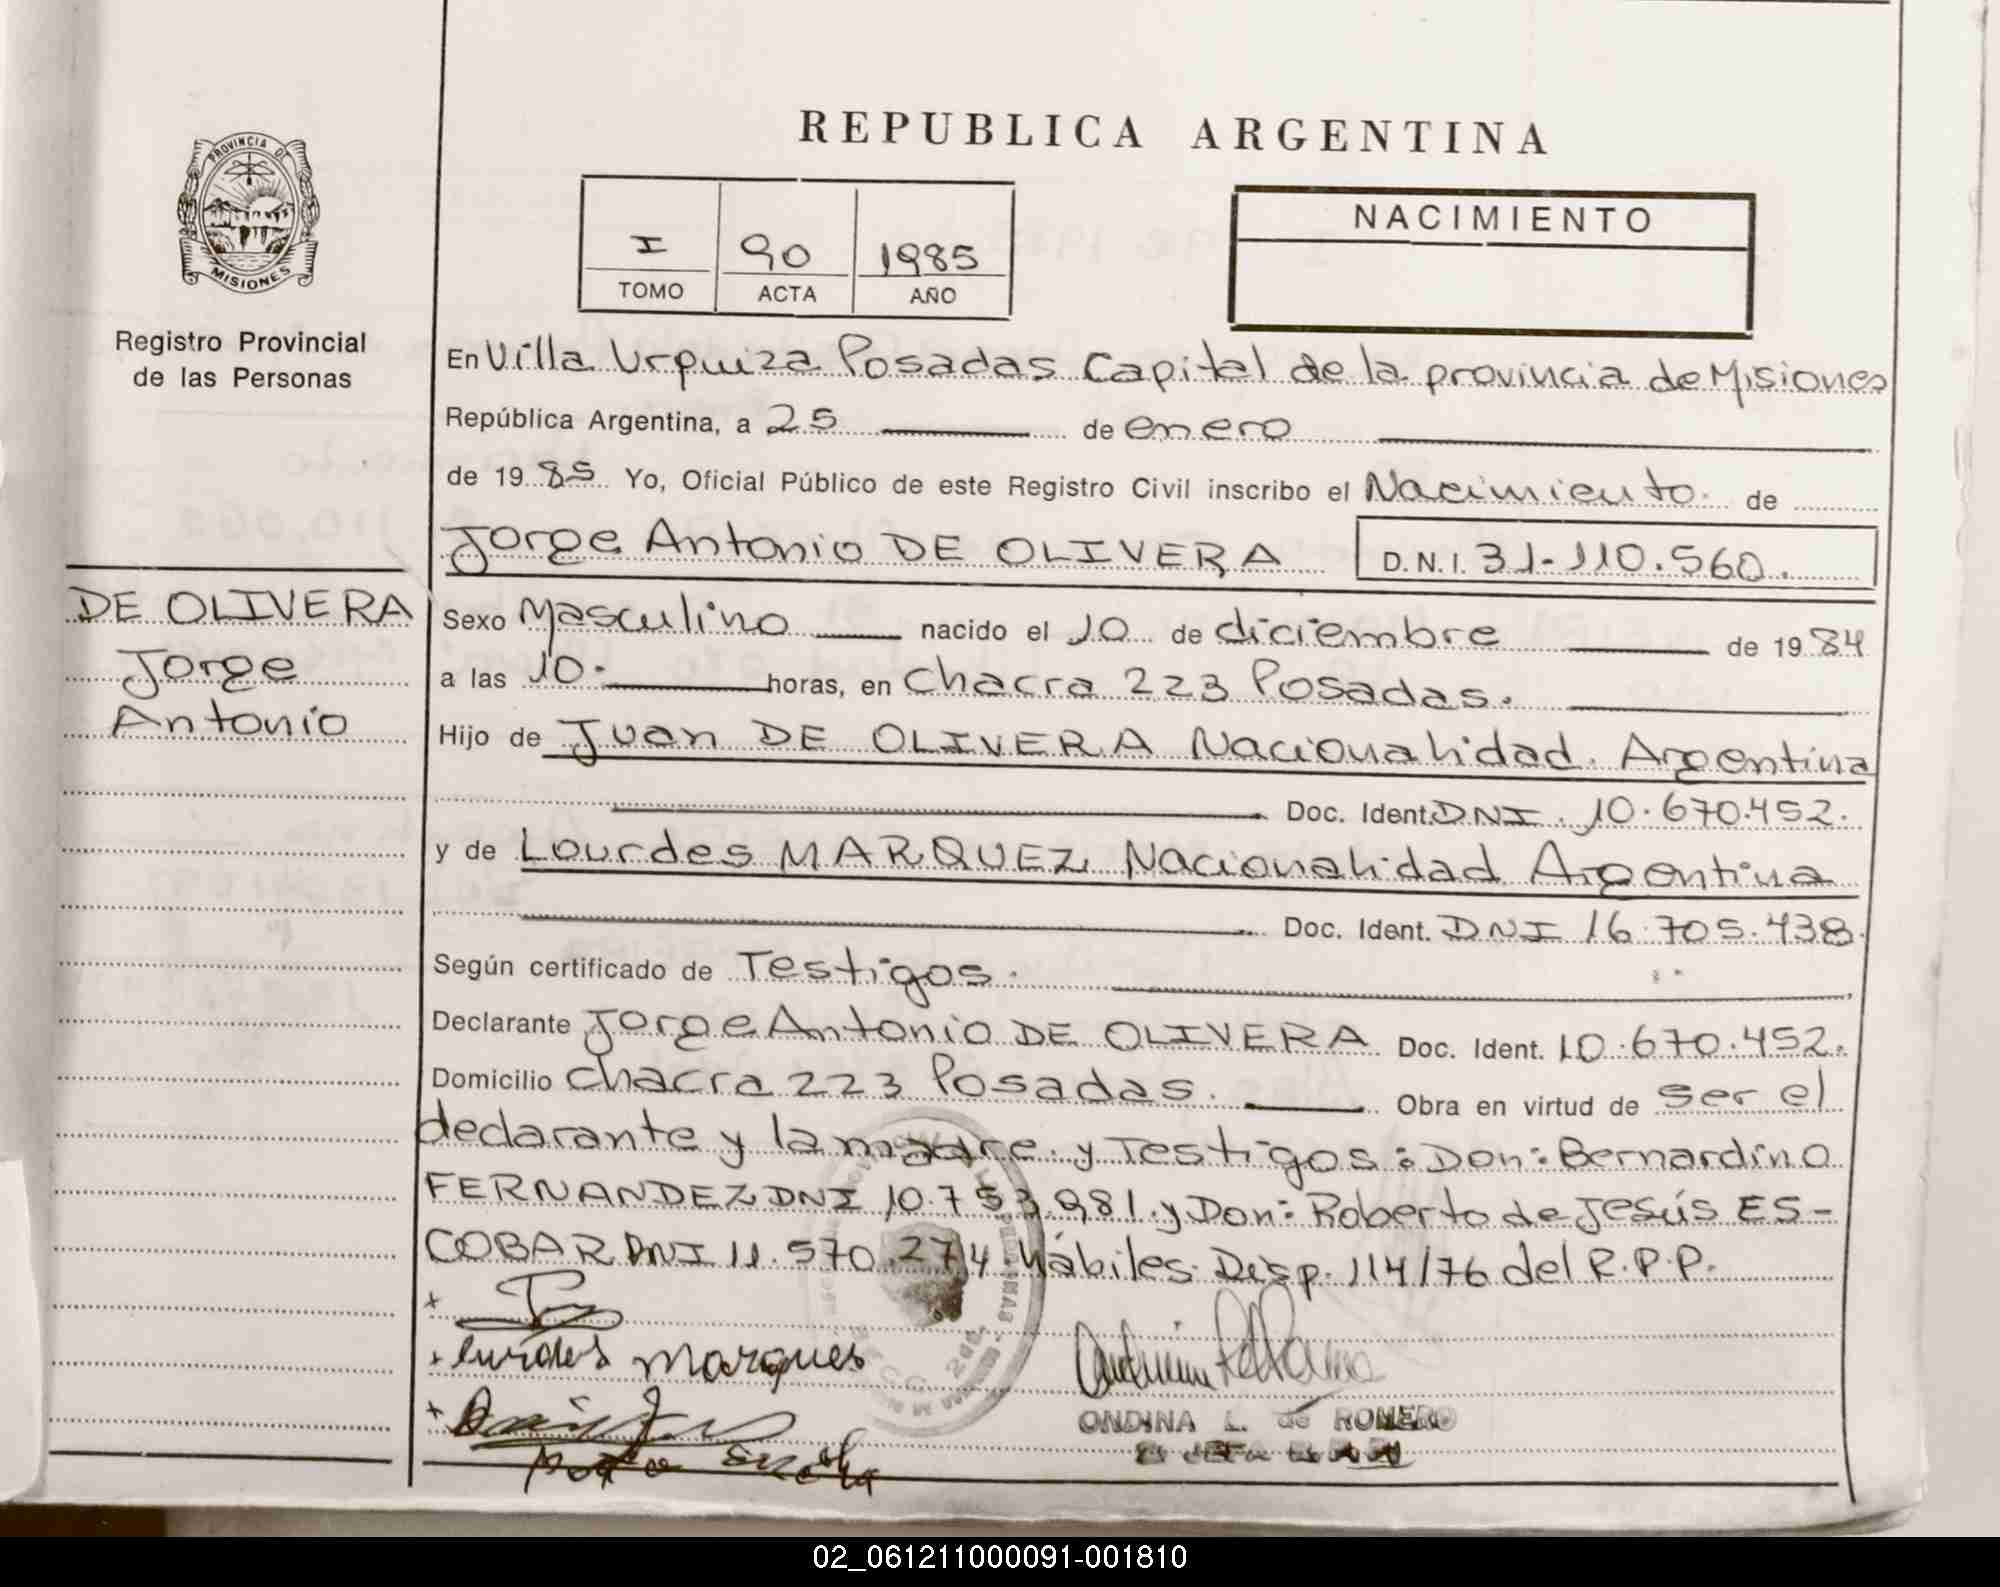 REPUBLICA ARGENTINA
PROVINCIA DE
MISIONES
I 90 1985
TOMO ACTA AÑO
NACIMIENTO
Registro Provincial
de las Personas
En Villa Urquiza Posadas Capital de la provincia de Misiones
República Argentina, a 25 de enero
de 1985 Yo, Oficial Público de este Registro Civil inscribo el Nacimiento de
Jorge Antonio DE OLIVERA D.N.I. 31-110.560.
DE OLIVERA
Jorge
Antonio
Sexo Masculino nacido el 10 de diciembre de 1984
a las 10- horas, en Chacra 223 Posadas.
Hijo de Juan DE OLIVERA Nacionalidad Argentina
Doc. Ident. DNI. 10.670.452.
y de Lourdes MARQUEZ Nacionalidad Argentina
Doc. Ident. DNI 16.705.438.
Según certificado de Testigos.
Declarante Jorge Antonio DE OLIVERA Doc. Ident. 10.670.452.
Domicilio Chacra 223 Posadas. Obra en virtud de ser el
declarante y la madre y Testigos: Don: Bernardino
FERNANDEZ DNI 10.753.981. y Don: Roberto de Jesús ES-
COBAR DNI 11.570.274 hábiles. Disp. 114/76 del R.P.P.
lurdes marques
ONDINA L. de ROMERO
02_061211000091-001810